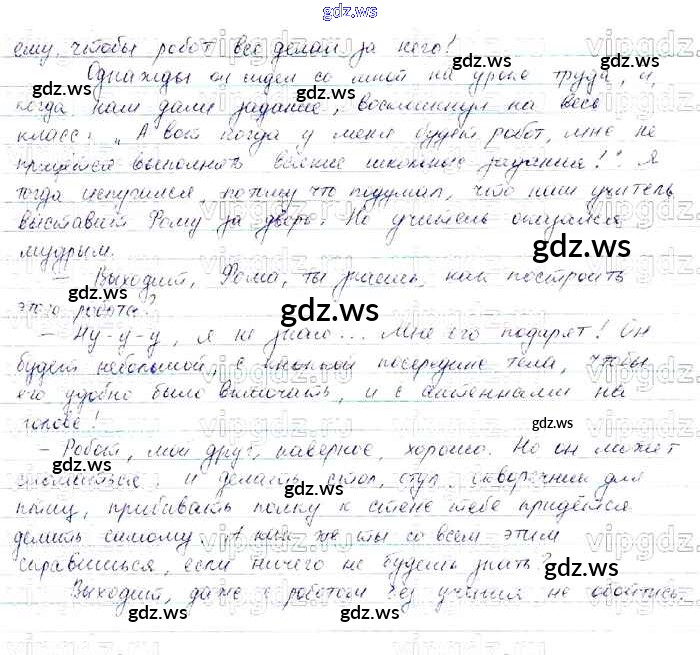 gdz.ws
ему, чтобы робот всё делал за него!
Однажды он сидел со мной на уроке труда, и,
когда нам дали задание, воскликнул на весь
класс: „А вот когда у меня будет робот, мне не
придётся выполнять всякие школьные задания!“ Я
тогда испугался, потому что подумал, что наш учитель
выставит Рому за дверь. Но учитель оказался
мудрым.
gdz.ws
– Выходит, Рома, ты знаешь, как построить
этого робота?
gdz.ws
gdz.ws
– Ну-у-у, я не знаю... Мне его подарят! Он
будет небольшой, с кнопкой посередине тела, чтобы
его удобно было включать, и с антеннами на
голове!
gdz.ws
– Робот, мой друг, наверное, хорошо. Но он может
сломаться, и делать стол, стул, скворечник для
gdz.ws
gdz.ws
птиц, прибивать полку к стене тебе придётся
делать самому. А как же ты со всем этим
справишься, если ничего не будешь знать?
gdz.ws
Выходит, даже с роботом без учения не обойтись.
gdz.ws
gdz.ws